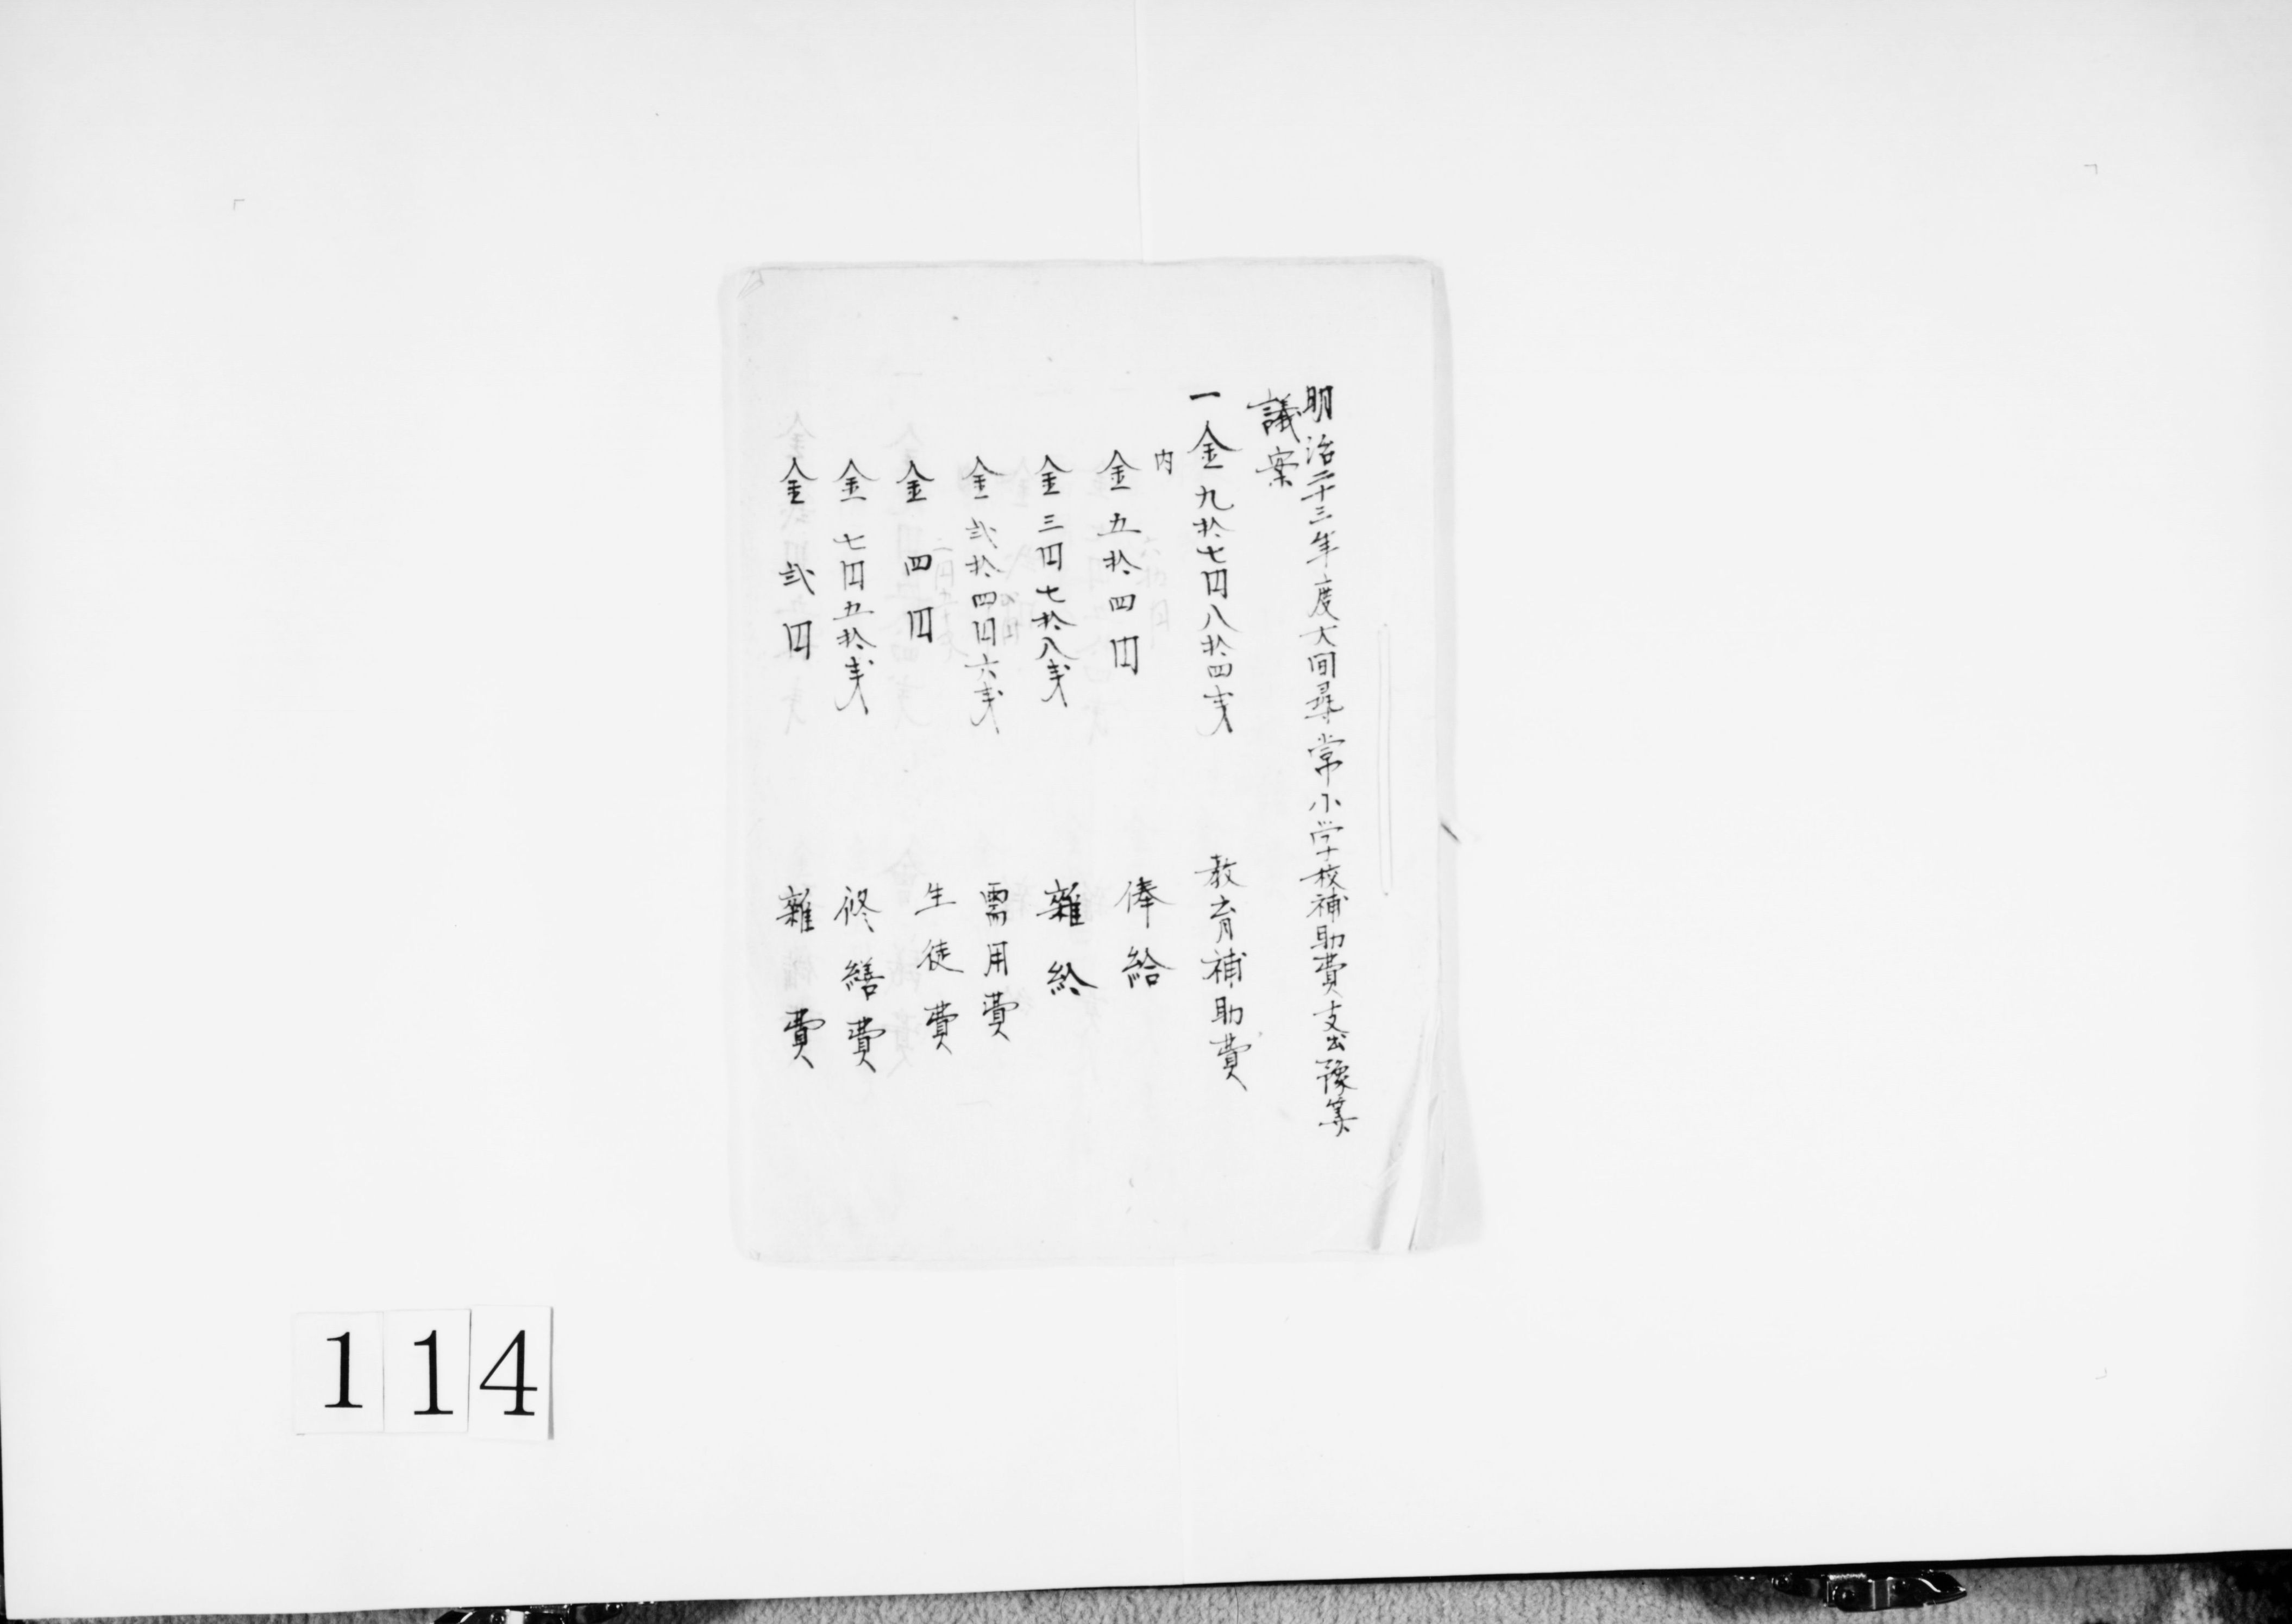 明治二十三年度大间尋常小学校補助費支出豫算
議案
一金九拾七円八拾四戋 教育補助費
内
金五拾四円 俸給
金三円七拾八戋 雜給
金弐拾四円六戋 需用費
金四円 生徒費
金七円五拾戋 修繕費
金弐円 雜費
114